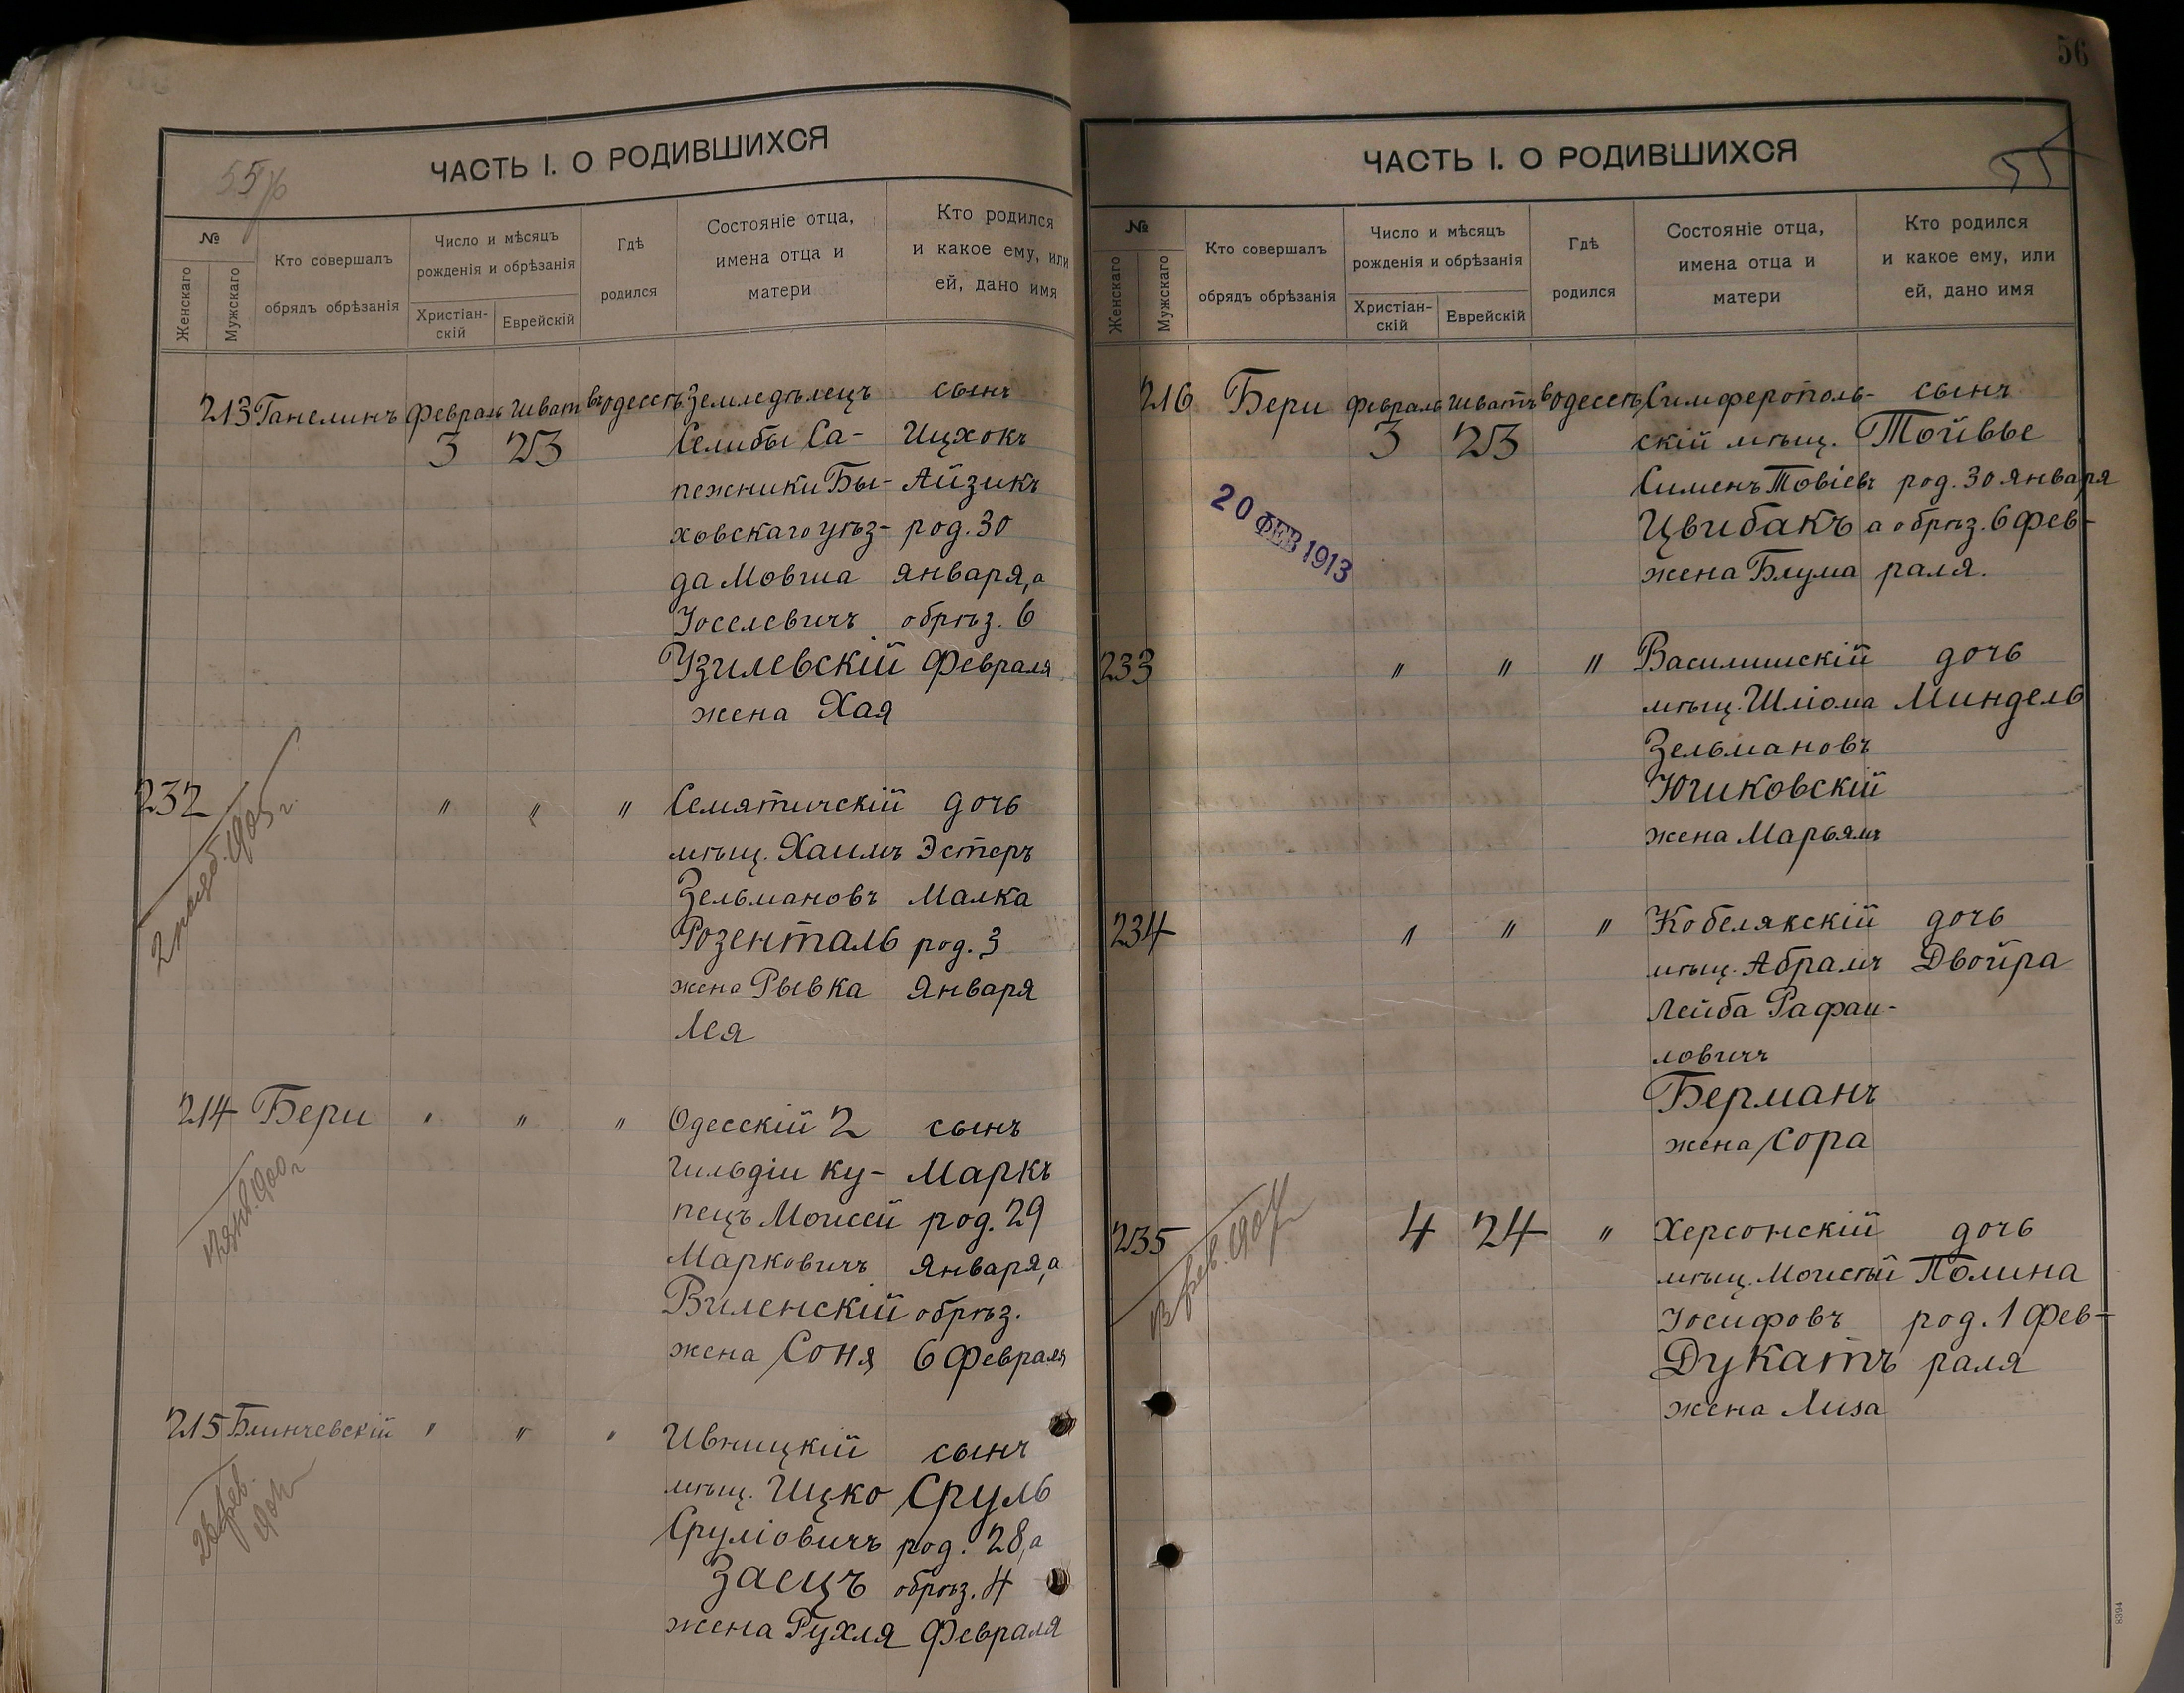 55
ЧАСТЬ I. О РОДИВШИХСЯ
№
Женскаго
Мужскаго
Кто совершалъ
обрядъ обрѣзанія
Число и мѣсяцъ
рожденія и обрѣзанія
Христіан-
скій
Еврейскій
Гдѣ
родился
Состояніе отца,
имена отца и
матери
Кто родился
и какое ему, или
ей, дано имя
213 Ганелинъ Февраль Шват въ Одессѣ Земледѣлецъ сынъ
3 23 Селибы Са- Ицхокъ
пежники Бы- Айзикъ
ховскаго уѣз- род. 30
да Мовша Января, а
Іоселевичъ обрѣз. 6
Узилевскій Февраля
жена Хая
232 " " " Семятичскій дочь
мѣщ. Хаимъ Эстеръ
Зельмановъ Малка
Розенталь род. 3
жена Рывка Января
Лея
214 Бери " " " Одесскій 2 сынъ
Гильдіи ку- Маркъ
пецъ Моисей род. 29
Марковичъ Января, а
Виленскій обрѣз.
жена Соня 6 Февраля
215 Блинчевскій " " " Ивницкій сынъ
мѣщ. Ицко Сруль
Сруліовичъ род. 28, а
Заецъ обрѣз. 4
жена Рухля Февраля
56
ЧАСТЬ I. О РОДИВШИХСЯ
55
№
Женскаго
Мужскаго
Кто совершалъ
обрядъ обрѣзанія
Число и мѣсяцъ
рожденія и обрѣзанія
Христіан-
скій
Еврейскій
Гдѣ
родился
Состояніе отца,
имена отца и
матери
Кто родился
и какое ему, или
ей, дано имя
216 Бери Февраль Шватъ въ Одессѣ Симферополь- сынъ
3 23 скій мѣщ. Тойвье
Сименъ Товіевъ род. 30 Января
20 ФЕВ 1913
Цвибакъ а обрѣз. 6 Фев-
жена Блума раля.
233 " " " Василишскій дочь
мѣщ. Шліома Миндель
Зельмановъ
Югиковскій
жена Марьямъ
234 " " " Кобелякскій дочь
мѣщ. Абрамъ Двойра
Лейба Рафаи-
ловичъ
Берманъ
жена Сора
235 4 24 " Херсонскій дочь
мѣщ. Моисѣй Полина
Іосифовъ род. 1 Фев-
Дукатъ раля
жена Лиза
8394